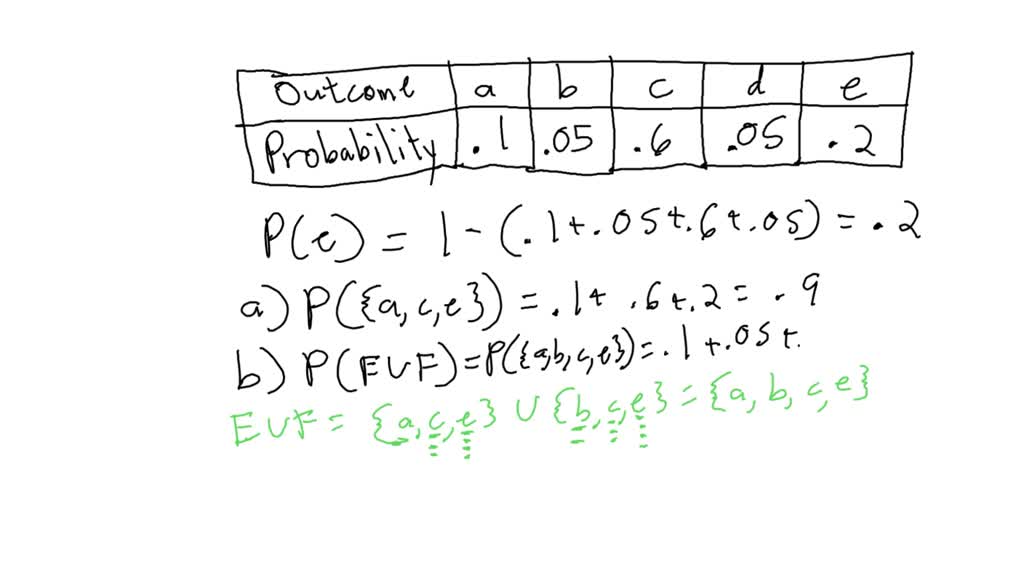 Outcome a b c d e
Probability .1 .05 .6 .05 .2
P(e) = 1 - (.1+.05+.6+.05) = .2
a) P({a,c,e}) = .1+ .6+.2 = .9
b) P(E∪F)=P({a,b,c,e})=.1+.05+.
E∪F = {a,c,e} ∪ {b,c,e} = {a,b,c,e}